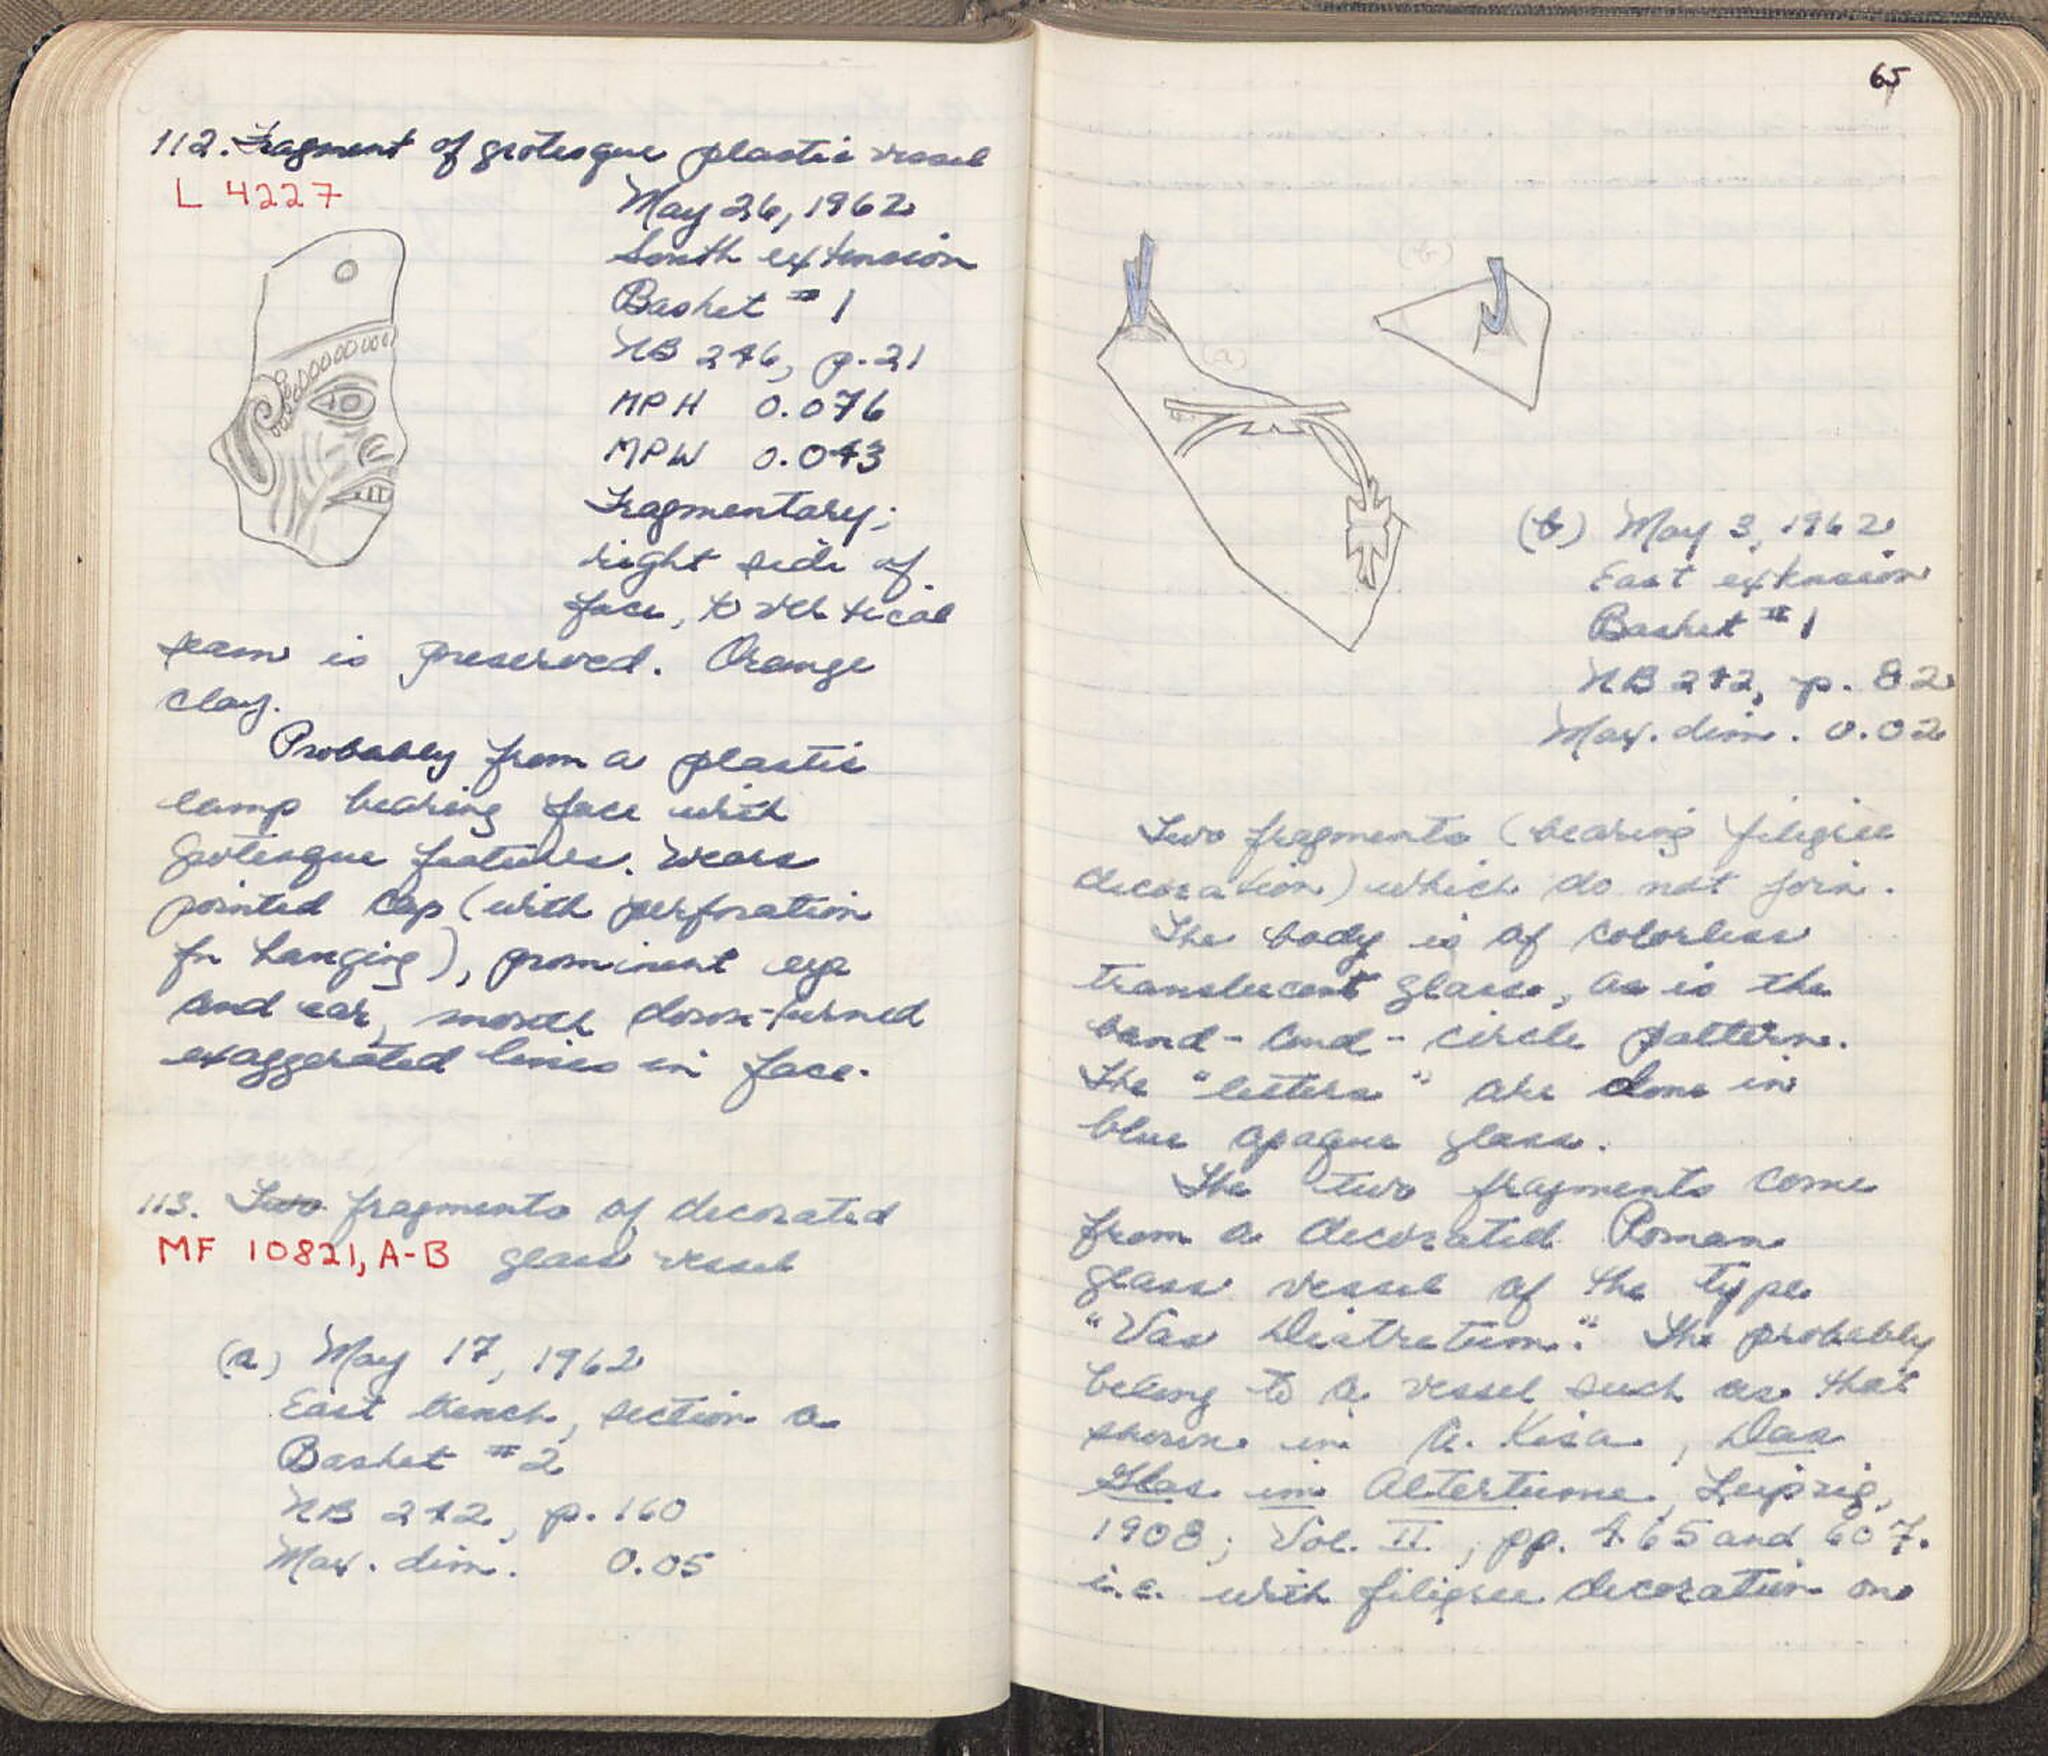 112. Fragment of grotesque plastic vessel
L 4227
May 26, 1962
South extension
Basket #1
NB 246, p. 21
MPH 0.076
MPW 0.043
Fragmentary;
right side of
face, to vertical
seam is preserved. Orange
clay.
Probably from a plastic
lamp bearing face with
grotesque features. Wears
pointed cap (with perforation
for hanging), prominent eye
and ear, mouth down-turned
exaggerated lines in face.
113. Two fragments of decorated
MF 10821, A-B glass vessel
(a) May 17, 1962
East trench, section a
Basket #2
NB 242, p. 160
Max. dim. 0.05
65
(b)
(a)
(b) May 3, 1962
East extension
Basket #1
NB 242, p. 82
Max. dim. 0.02
Two fragments (bearing filigree
decoration) which do not join.
The body is of colorless
translucent glass, as is the
band-and-circle pattern.
The "letters" are done in
blue opaque glass.
The two fragments come
from a decorated Roman
glass vessel of the type
"Vas Diatretum." The probably
belong to a vessel such as that
shown in A. Kisa, Das
Glas im Altertume, Leipzig,
1908; Vol. II, pp. 465 and 607.
i.e. with filigree decoration on